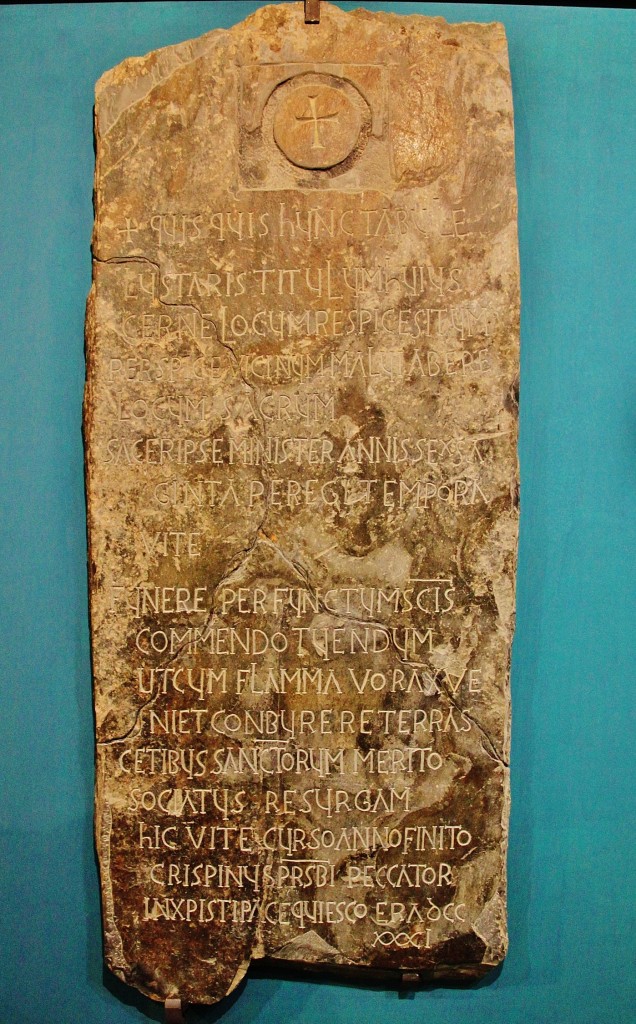 + QUISQUIS HUNC TABULE
LUSTARIS TITULUM HUIUS
CERNE LOCUM RESPICE SITUM
PERSPICE VICINUM MALUI ABERE
LOCUM SACRUM
SACER IPSE MINISTER ANNIS SEXSA
GINTA PEREGI TEMPORA
VITE
FUNERE PERFUNCTUM SCIS
COMMENDO TUENDUM
UT CUM FLAMMA VORAX VE
NIET CONBURERE TERRAS
CETIBUS SANCTORUM MERITO
SOCIATUS RESURGAM
HIC VITE CURSO ANNO FINITO
CRISPINUS PRSBI PECCATOR
IN XPISTI PACE QUIESCO ERA DCC
XXXI